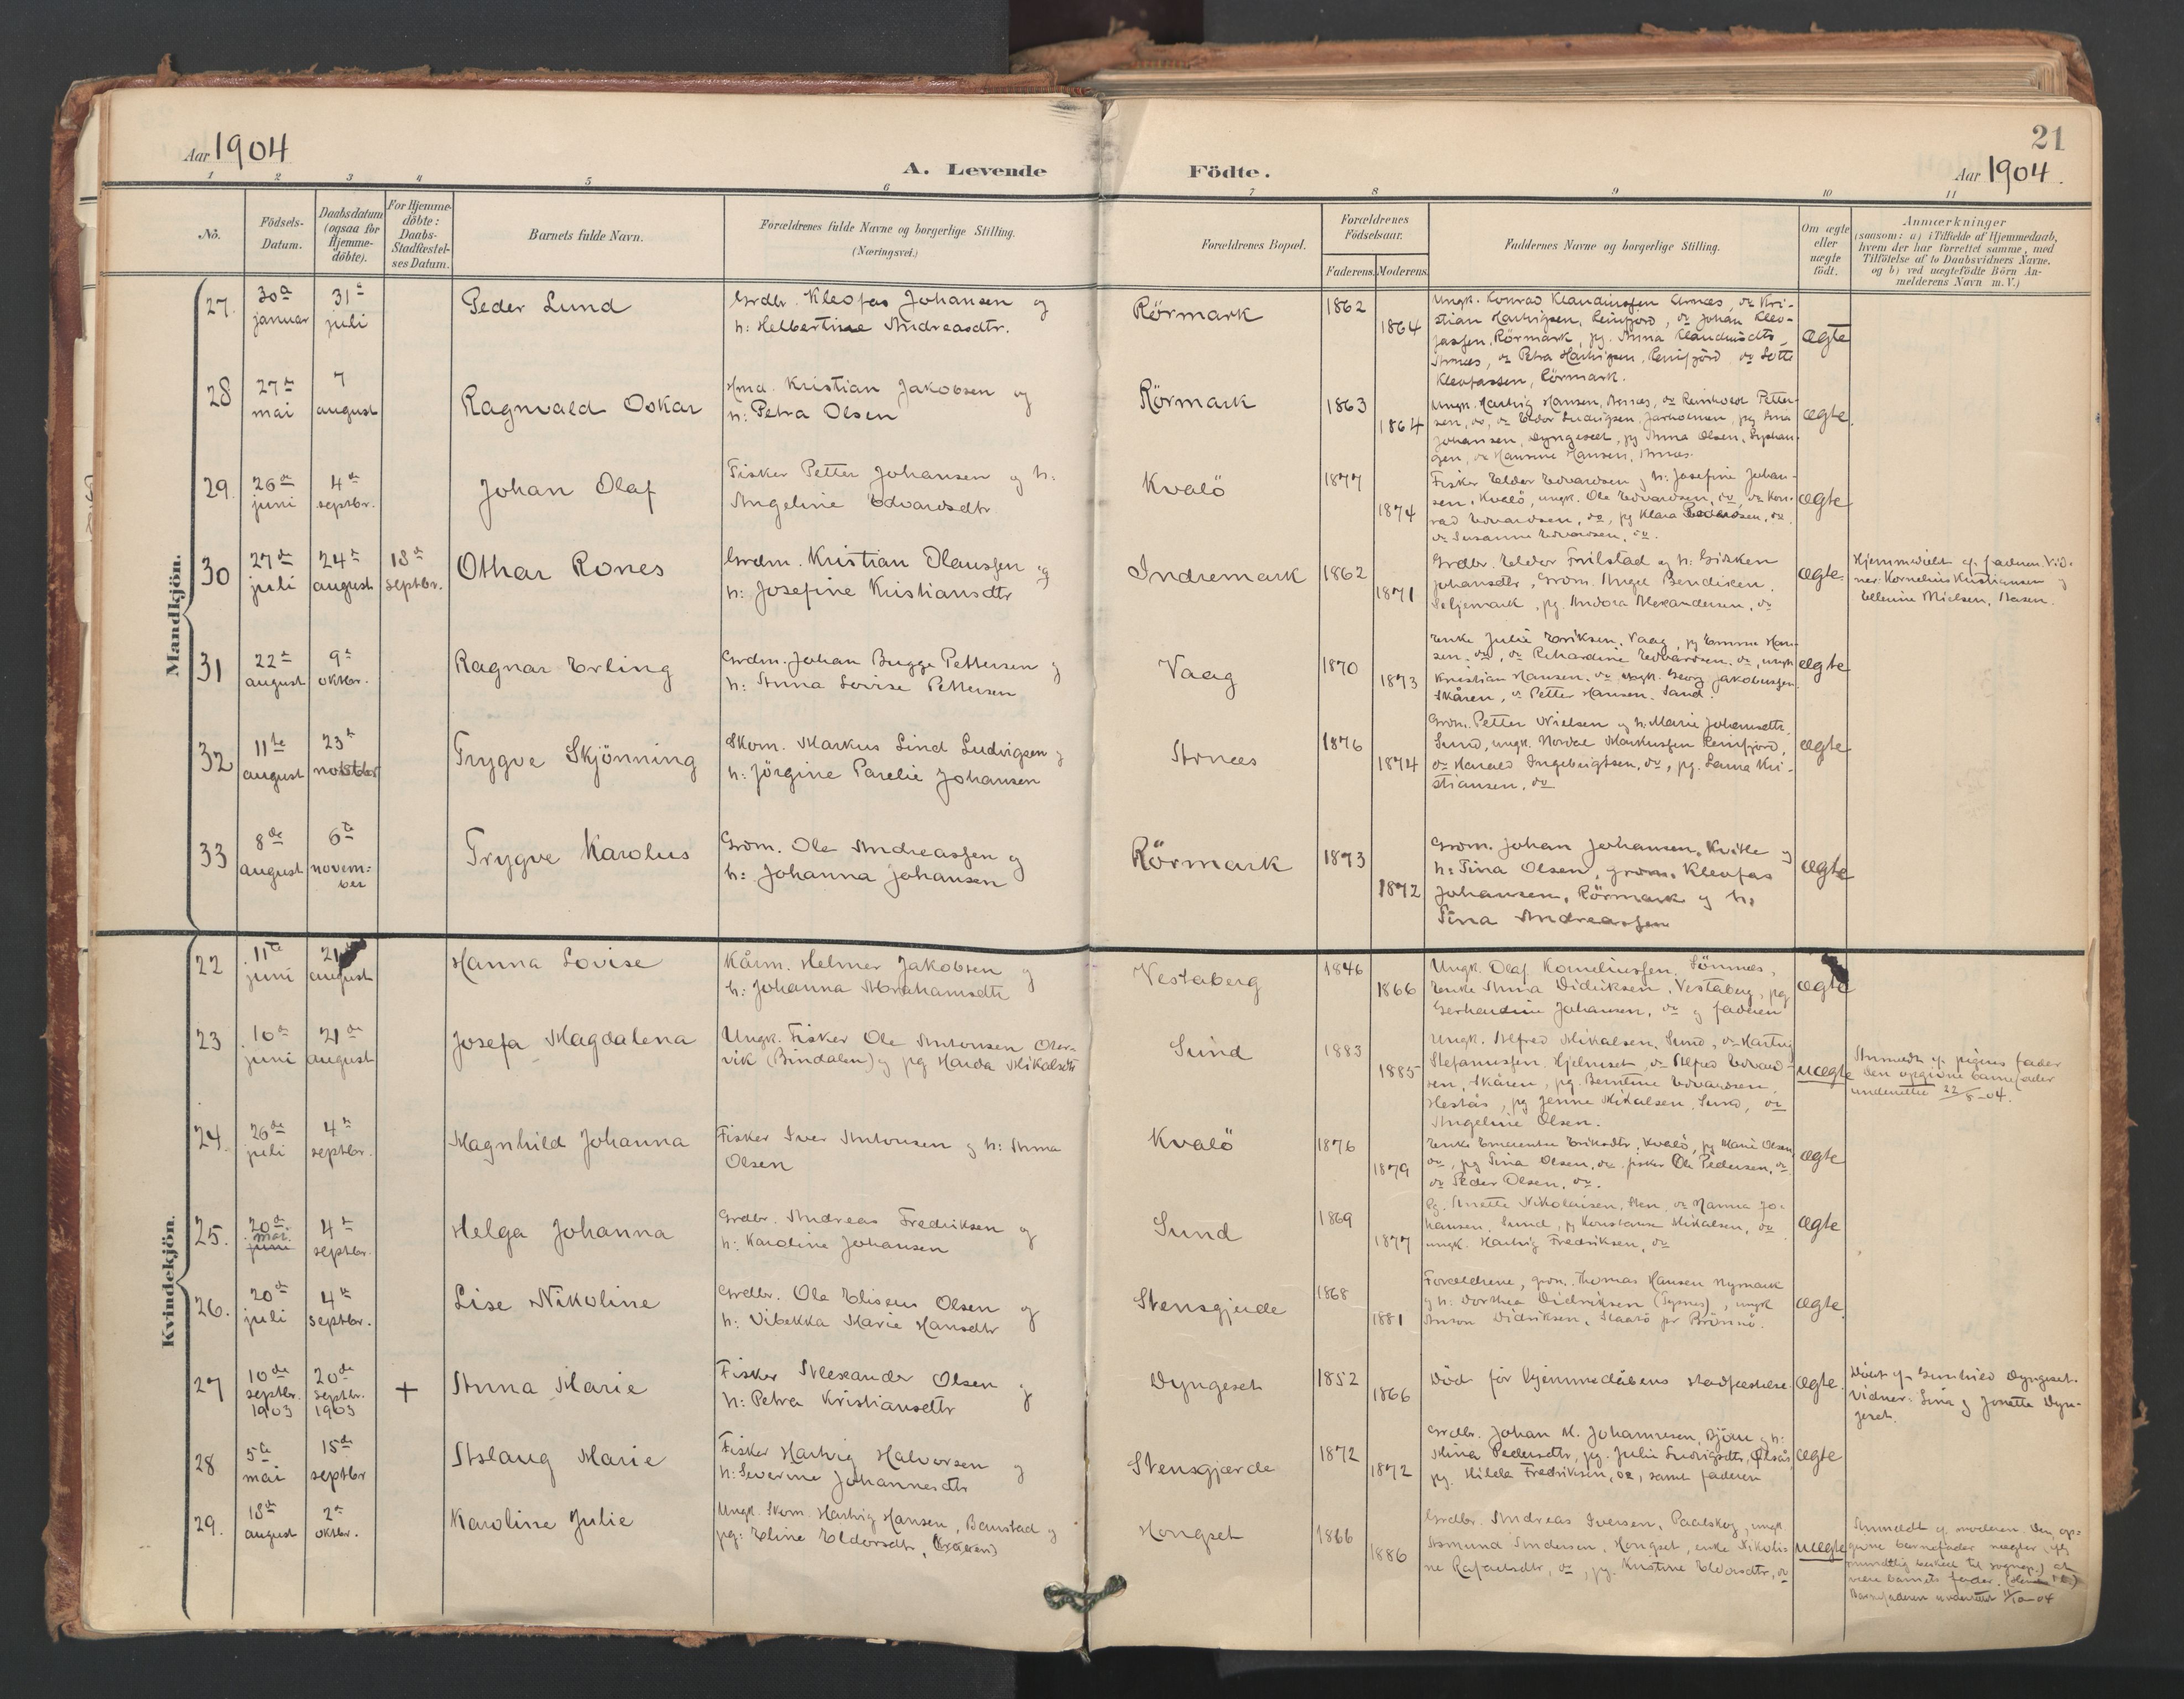 Aar 1904
A. Levende
Födte.
21
Aar 1904.
1 2 3 4 5 6 7 8 9 10 11
No.
Födsels-
Datum.
Daabsdatum
(ogsaa for
Hjemme-
döbte).
For Hjemme-
döbte:
Daabs-
Stadfæstel-
ses Datum.
Barnets fulde Navn.
Forældrenes fulde Navne og borgerlige Stilling.
(Næringsvei.)
Forældrenes Bopæl.
Forældrenes
Födselsaar.
Faderens. Moderens.
Faddernes Navne og borgerlige Stilling.
Om ægte
eller
uægte
födt.
Anmærkninger
(saasom: a) i Tilfælde af Hjemmedaab,
hvem der har forrettet samme, med
Tilföielse af to Daabsvidners Navne,
og b) ved uægtefödte Börn An-
melderens Navn m. V.)
Mandkjön.
27. 30te januar
31te juli
Peder Lund
Grdbr. Kleofas Johansen og
h: Helbertine Andreasdtr.
Rörmark
1862
1864
Ungk. Konrad Klaudiussen Arnæs, do Kri-
stian Hartvigsen, Reinfjord, do Johan Kleo-
fassen, Rörmark, pg. Anna Klaudiusdtr,
Arnæs, do Petra Hartvigsen, Reinfjord, do Lotte
Kleofassen, Rörmark.
ægte
28 27de mai
7 august
Ragnvald Oskar
Hmd. Kristian Jakobsen og
h: Petra Olsen
Rörmark
1863
1864
Ungk. Hartvig Hansen, Arnæs, do Reinholdt Petter-
sen, do, do Eldor Ludvigsen, pg
Johansen, Dyngeset, pg Anna Olsen,
gen, do Hansine Hansen, Arnæs.
ægte.
29. 26de juni
4de septbr.
Johan Olaf
Fisker Petter Johansen og h:
Angeline Edvardsdtr
Kvalö
1877
1874
Fisker Eldor Edvardsen og h: Josefine Johan-
sen, Kvalö, ungk. Ole Edvardsen, do, do Kon-
rad Edvardsen, do, pg Klara Pedersen, do
do Susanne Edvardsen, do.
ægte
30 27de juli
24de august
18de septbr.
Othar Rones
Grdm. Kristian Olaussen og
h: Josefine Kristiansdtr
Indremark
1862
1871
Grdbr. Eldor Friilstad og h: Girken
Johansdtr, Grdm. Angel Bendiksen,
Seljemark, pg. Andora Alexandersen, do
ægte.
Hjemmedøbt af faderen. Vid-
ner: Kornelius Kristiansen og
Ellerine Nielsen, Aasen.
31 22de august
9de oktbr.
Ragnar Erling
Grdm. Johan Bugge Pettersen og
h: Anna Lovise Pettersen
Vaag
1870
1873
Enke Julie Eriksen, Vaag, pg Emma Han-
sen, do, do Rikardine Edvardsen, do, ungk
Kristian Hansen, do ungk. Georg Jakobussen
Skåren, do Petter Hansen, Sand.
ægte
32 11te august
23de
Trygve Skjönning
Skom. Markus Lind Ludvigsen og
h: Jörgine Parelie Johansen
Arnæs
1876
1874
Grdm. Petter Nielsen og h: Marie Johansdtr,
Sund, ungk. Nordal Markussen Reinfjord,
do Harald Ingebrigtsen, do, pg. Laura Kri-
stiansen, do
ægte
33 8de august
6te novem-
ber
Trygve Karolus
Grdm. Ole Andreassen og
h: Johanna Johansen
Rörmark
1873
1872
Grdm. Johan Johansen, Kville og
h: Tina Olsen, grdm. Kleofas
Johansen, Rörmark og h:
Tina Andreassen
ægte
Kvindekjön.
22 11te juni
21 august
Hanna Lovise
Kårm. Helmer Jakobsen og
h: Johanna Abrahamsdtr
Vestaberg
1846
1866
Ungk. Olaf Korneliussen, Sömnes,
Enke Anna Didriksen, Vestaberg, pg
Gerhardine Johansen, do og faderen
ægte
23 10de juni
21de august
Josefa Magdalena
Ungk. Fisker Ole Antonsen Oler-
vik (Bindalen) og pg Harda Mikalsdtr
Sund
1883
1885
Ungk. Alfred Mikalsen, Sund, do Hartvig
Stefanussen, Hjelmset, do Alfred Edvard-
sen, Skåren, pg. Berntine Edvardsen
Hestås, pg Jenne Mikalsen, Sund, do
Angeline Olsen.
uægte
Anmeldt af pigens fader
den opgivne barnefader
underrettet 22/8-04.
24. 26de juli
4de septbr.
Magnhild Johanna
Fisker Iver Antonsen og h: Anna
Olsen
Kvalö
1876
1879
Enke Emerentse Eriksdtr, Kvalö, pg Marie Olsen,
do, pg Tina Olsen, do fisker Ole Pedersen, do
do Peder Olsen, do.
ægte
25. 20de mai juni
4de septbr.
Helga Johanna
Grdbr. Andreas Fredriksen og
h: Karoline Johansen
Sund
1869
1877
Pg. Anette Nikolaisen, Sten, do Nanna Jo-
hansen, Sund, pg Konstanse Mikalsen, do
ungk. Hartvig Fredriksen, do
ægte
26. 20de juli
4de septbr.
Lise Nikoline
Grdbr. Ole Eliseus Olsen og
h: Vibekka Marie Hansdtr
Stensgjerde
1868
1881
Forældrene, grdm. Thomas Hansen Nymark
og h: Dorthea Didriksen, ungk
Anton Didriksen, pr Brönnö.
ægte
27 10de septbr. 1903
20de septbr. 1903
+
Anna Marie
Fisker Alexander Olsen og
h: Petra Kristiansdtr
Dyngeset
1852
1866
Död för hjemmedåbens stadfæstelse.
ægte.
Döbt af Gunhild Dyngeset.
Vidner: Lina og Jonette Dyn-
geset.
28 5te mai
15de septbr
Aslaug Marie
Fisker Hartvig Halvorsen og
h: Severine Johannesdtr
Stensgjærde
1872
1872
Grdbr. Johan M. Johannesen, Björn og h:
Mina Pedersdtr, pg. Julie Ludvigsdtr,
pg. Hilda Fredriksen, do, samt faderen
ægte
29. 18de august
2de oktbr.
Karoline Julie
Ungk. Skom. Hartvig Hansen, Baustad og
pg: Eline Eldorsdtr,
Hongset
1866
1886
Grdbr. Andreas Iversen, Paalskog, ungk.
Asmund Andersen, Hongset, enke Nikolai-
ne Rafaelsdtr, do, pg. Kristine Eldorsdtr, do
uægte
Anmeldt af moderen. Den op-
givne barnefader nægter (ifg
mundtlig besked til sognepr.) at
være barnets fader.
Barnefaderen underrettet 11/10-04